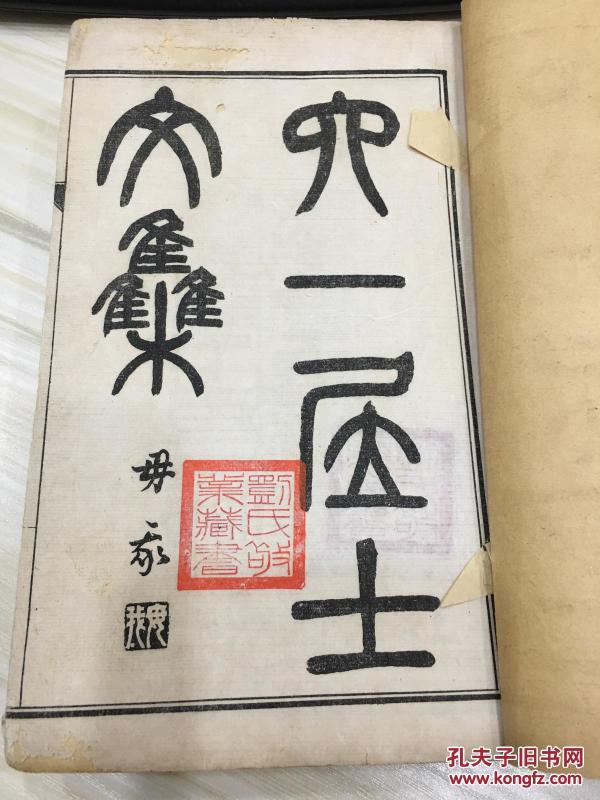 六一居士
文集
毋我
毋我
劉氏敬
業藏書
孔夫子旧书网
www.kongfz.com